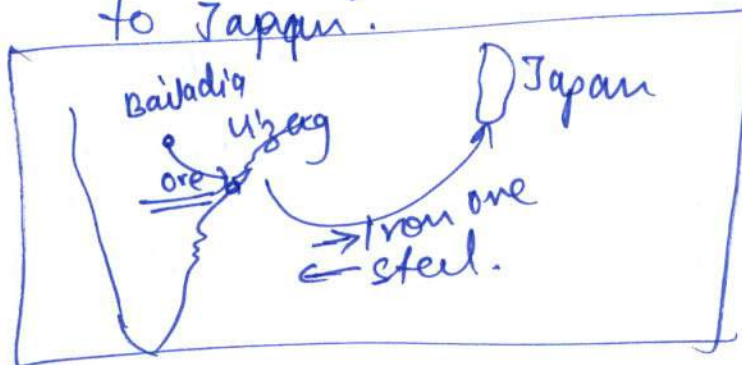 to Japan.
Bailadia
Vizag
ore
Japan
→ Iron ore
← steel.